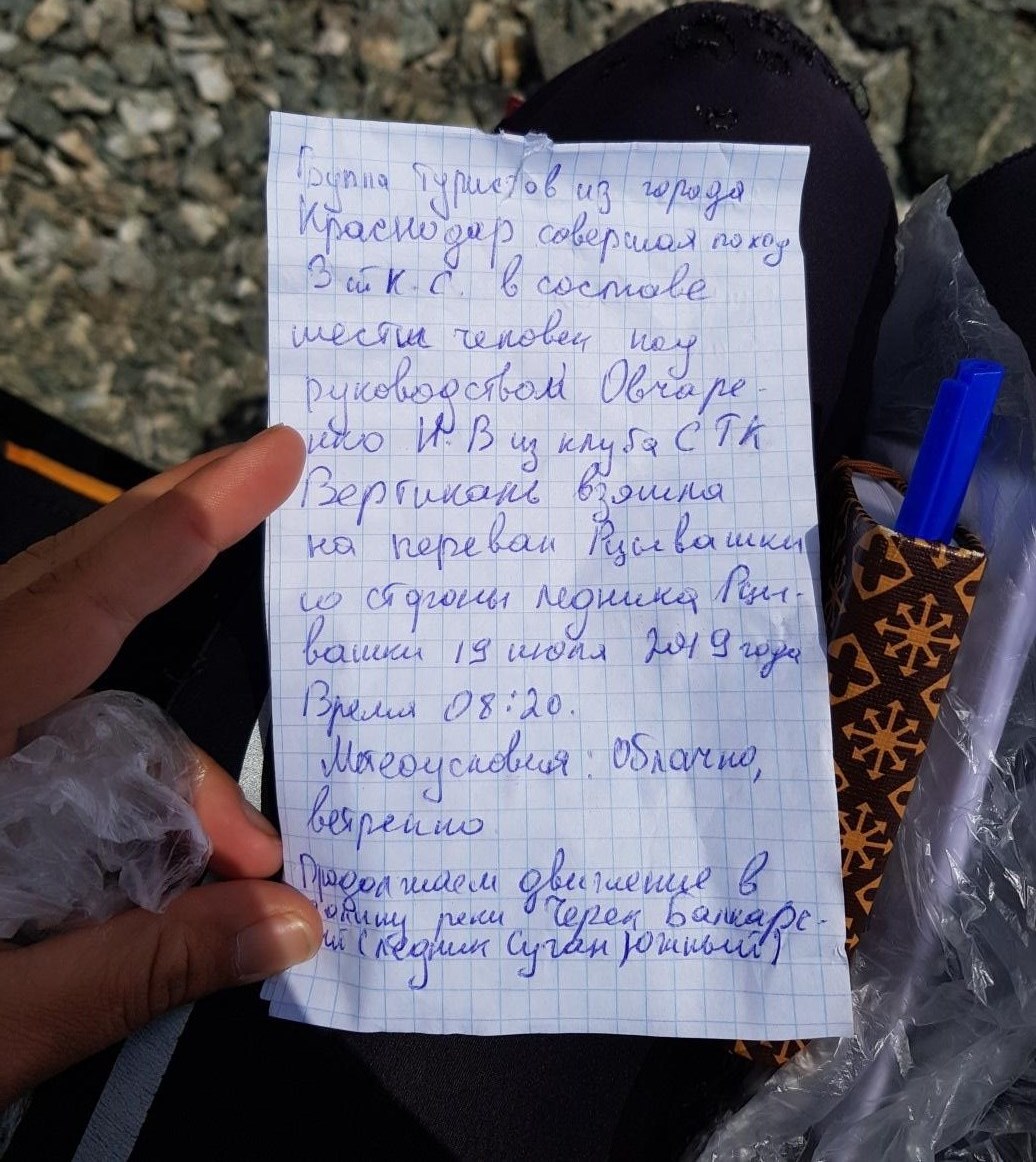 Группа туристов из города
Краснодар совершая поход
3 й к.с. в составе
шести человек под
руководством Овчаре-
нко И.В из клуба СТК
Вертикаль взошла
на перевал Рцывашки
со стороны ледника Рцы-
вашки 19 июля 2019 года
Время 08:20.
Метеоусловия: Облачно,
ветренно
Продолжаем движение в
долину реки Черек Балкарс-
кий (ледник Суган Южный)